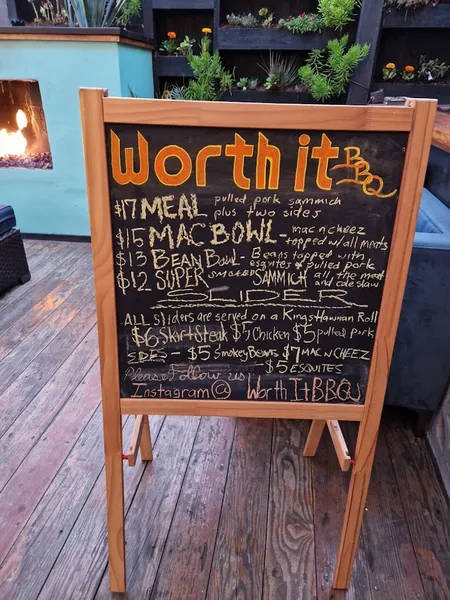 Worth it BBQ
$17 MEAL pulled pork sammich
plus two sides
$15 MAC BOWL - mac n cheez
topped w/all meats
$13 BEAN Bowl - Beans topped with
esquites & pulled pork
$12 SUPER SMOKED SAMMICH all the meat
and coleslaw
SLIDER
ALL Sliders are served on a Kings Hawaiian Roll
$6 Skirt Steak $5 Chicken $5 pulled pork
SIDES - $5 Smokey Beans $7 MAC N CHEEZ
- $5 ESQUITES
Please Follow us!
Instagram Worth It BBQ